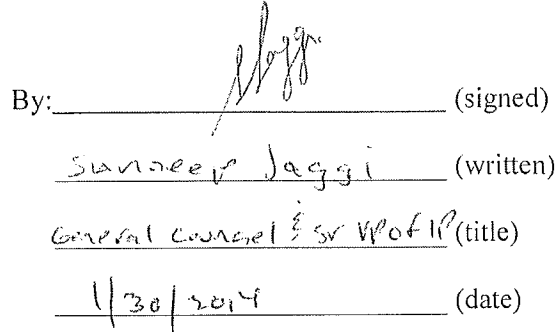 By: (signed)
Sundeep Jaggi (written)
General Counsel & Sr VP of IP (title)
1/30/2014 (date)